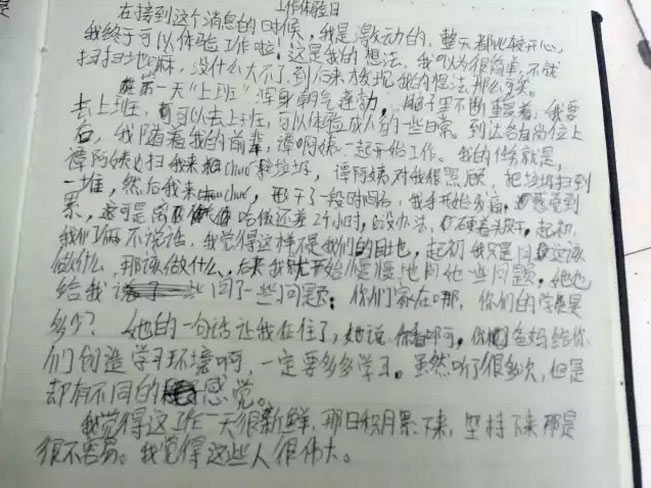 工作体验日
在接到这个消息的时候，我是激动的，整天都比较开心，
我终于可以体验工作啦！这是我的想法，我可以为很简单，不就
扫扫地嘛，没什么大不了，到后来发现我的想法那么可笑。
在第一天"上班"浑身朝气蓬勃，脑子里不断重复着，我要
去上班，可以去上班，可以体验成人的一些日常。到达各自岗位上
后，我随着我的前辈，谭啊姨一起开始工作。我的任务就是，
谭阿姨扫我来chuo垃圾，谭阿姨对我很照顾，把垃圾扫到
一堆，然后我来chuo，干了一段时间后，我手开始疼痛，感觉到
累，这可是离还差2个小时，没办法，硬着头皮干，起初，
我们俩不说话，我觉得这样不是我们的目地，起初我只是问这该
做什么，那该做什么，后来我就开始慢慢地问她一些问题，她也
给我回了一些问题：你们家在哪，你们的学费是
多少？她的一句话让我在住了，她说，你爸妈给你
们创造学习环境啊，一定要多多学习。虽然听了很多次，但是
却有不同的感觉。
我觉得这工作一天很新鲜，那日积月累下来，坚持下来那是
很不容易。我觉得这些人很伟大。